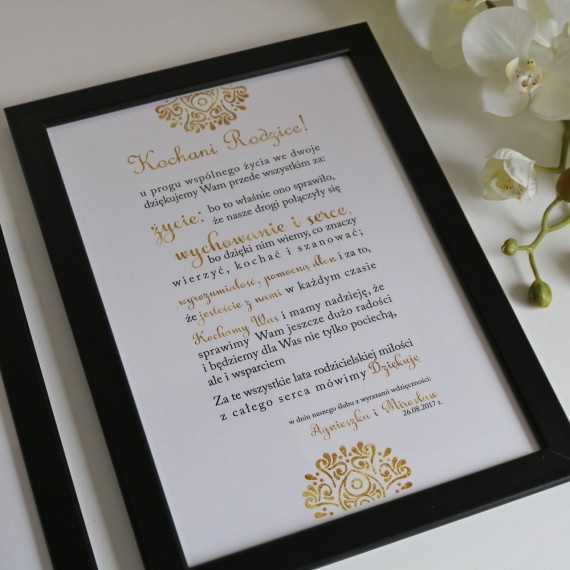 Kochani Rodzice!
u progu wspólnego życia we dwoje
dziękujemy Wam przede wszystkim za:
życie: bo to właśnie ono sprawiło,
że nasze drogi połączyły się
wychowanie i serce,
bo dzięki nim wiemy, co znaczy
wierzyć, kochać i szanować;
wyrozumiałość, pomocną dłoń i za to,
że jesteście z nami w każdym czasie
Kochamy Was i mamy nadzieję, że
sprawimy Wam jeszcze dużo radości
i będziemy dla Was nie tylko pociechą,
ale i wsparciem
Za te wszystkie lata rodzicielskiej miłości
z całego serca mówimy Dziękuję
w dniu naszego ślubu z wyrazami wdzięczności:
Agnieszka i Mirosław
26.08.2017 r.